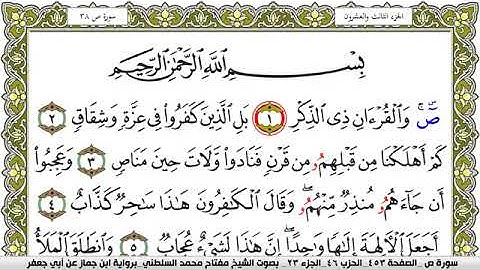 الجزء الثالث والعشرون
سورة ص ٣٨
بِسْمِ اللَّهِ الرَّحْمَٰنِ الرَّحِيمِ
صٓ وَالْقُرْءَانِ ذِي الذِّكْرِ ١ بَلِ الَّذِينَ كَفَرُوا فِي عِزَّةٍ وَشِقَاقٍ ٢
كَمْ أَهْلَكْنَا مِن قَبْلِهِمُۥ مِن قَرْنٍ فَنَادَوا وَّلَاتَ حِينَ مَنَاصٍ ٣ وَعَجِبُوا
أَن جَاءَهُمُۥ مُنذِرٌ مِّنْهُمُۥ ۖ وَقَالَ الْكَافِرُونَ هَٰذَا سَاحِرٌ كَذَّابٌ ٤
أَجَعَلَ الْآلِهَةَ إِلَٰهًا وَاحِدًا ۖ إِنَّ هَٰذَا لَشَيْءٌ عُجَابٌ ٥ وَانطَلَقَ الْمَلَأُ
سورة ص _ الصفحة ٤٥٣ _ الحزب ٤٦ _ الجزء ٢٣ _ بصوت الشيخ مفتاح محمد السلطني _ برواية ابن جماز عن أبي جعفر